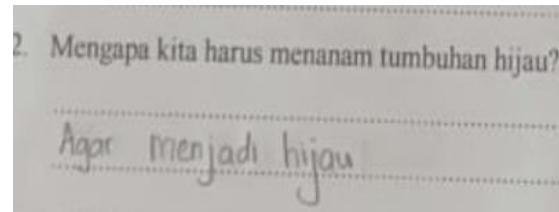 2. Mengapa kita harus menanam tumbuhan hijau?
Agar menjadi hijau